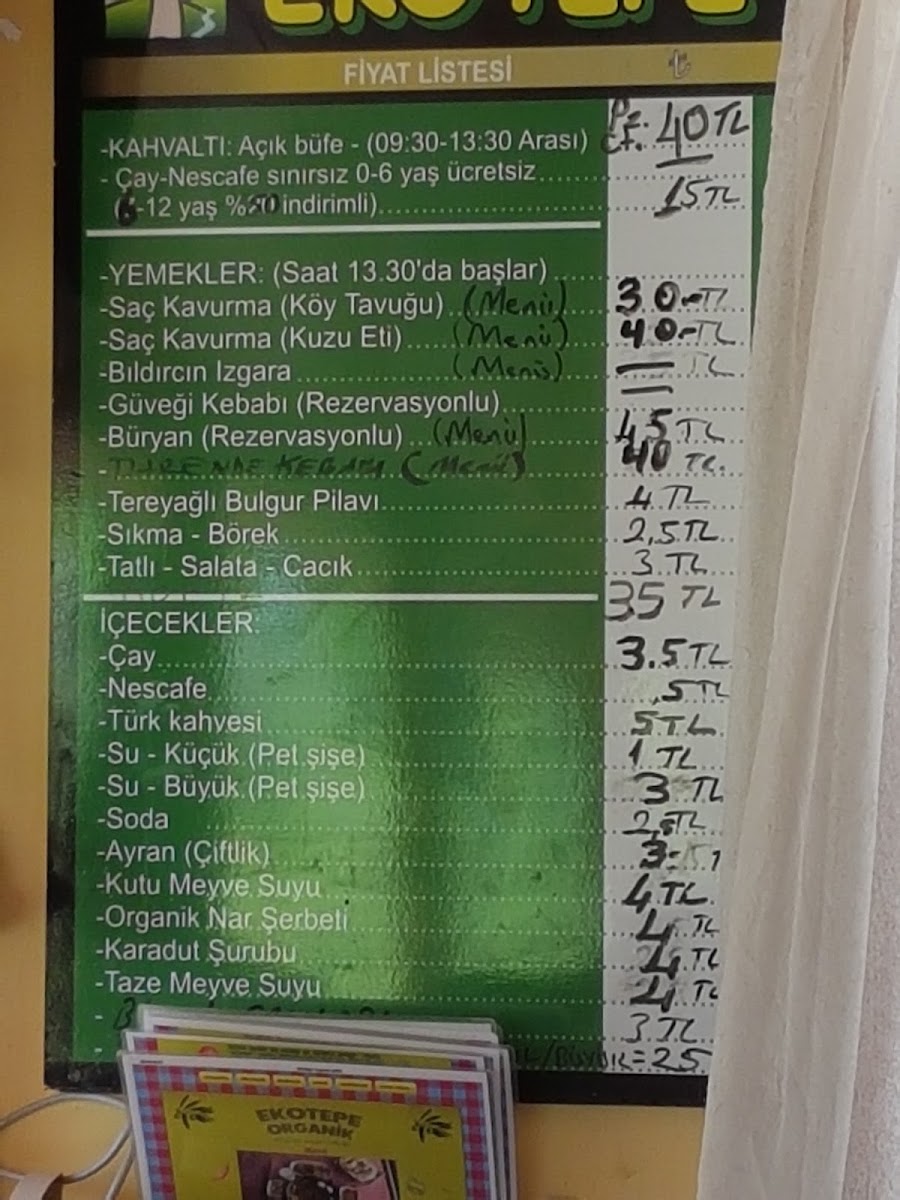 EKOTEPE
FİYAT LİSTESİ ₺
-KAHVALTI: Açık büfe - (09:30-13:30 Arası) Pz. Ct. 40 TL
- Çay-Nescafe sınırsız 0-6 yaş ücretsiz
(6-12 yaş %50 indirimli) 15 TL
-YEMEKLER: (Saat 13.30'da başlar)
-Saç Kavurma (Köy Tavuğu) (Menü) 30-TL
-Saç Kavurma (Kuzu Eti) (Menü) 40-TL
-Bıldırcın Izgara (Menü) TL
-Güveği Kebabı (Rezervasyonlu)
-Büryan (Rezervasyonlu) (Menü) 45 TL
- KEBABI (Menü) 40 TL.
-Tereyağlı Bulgur Pilavı 4 TL
-Sıkma - Börek 2,5 TL
-Tatlı - Salata - Cacık 3 TL
35 TL
İÇECEKLER:
-Çay 3.5 TL
-Nescafe 5 TL
-Türk kahvesi 5 TL
-Su - Küçük (Pet şişe) 1 TL
-Su - Büyük (Pet şişe) 3 TL
-Soda TL
-Ayran (Çiftlik) 3-
-Kutu Meyve Suyu 4 TL
-Organik Nar Şerbeti 4 TL
-Karadut Şurubu 4 TL
-Taze Meyve Suyu 4 TL
- 3 TL
- /BÜYÜK=25
EKOTEPE
ORGANİK